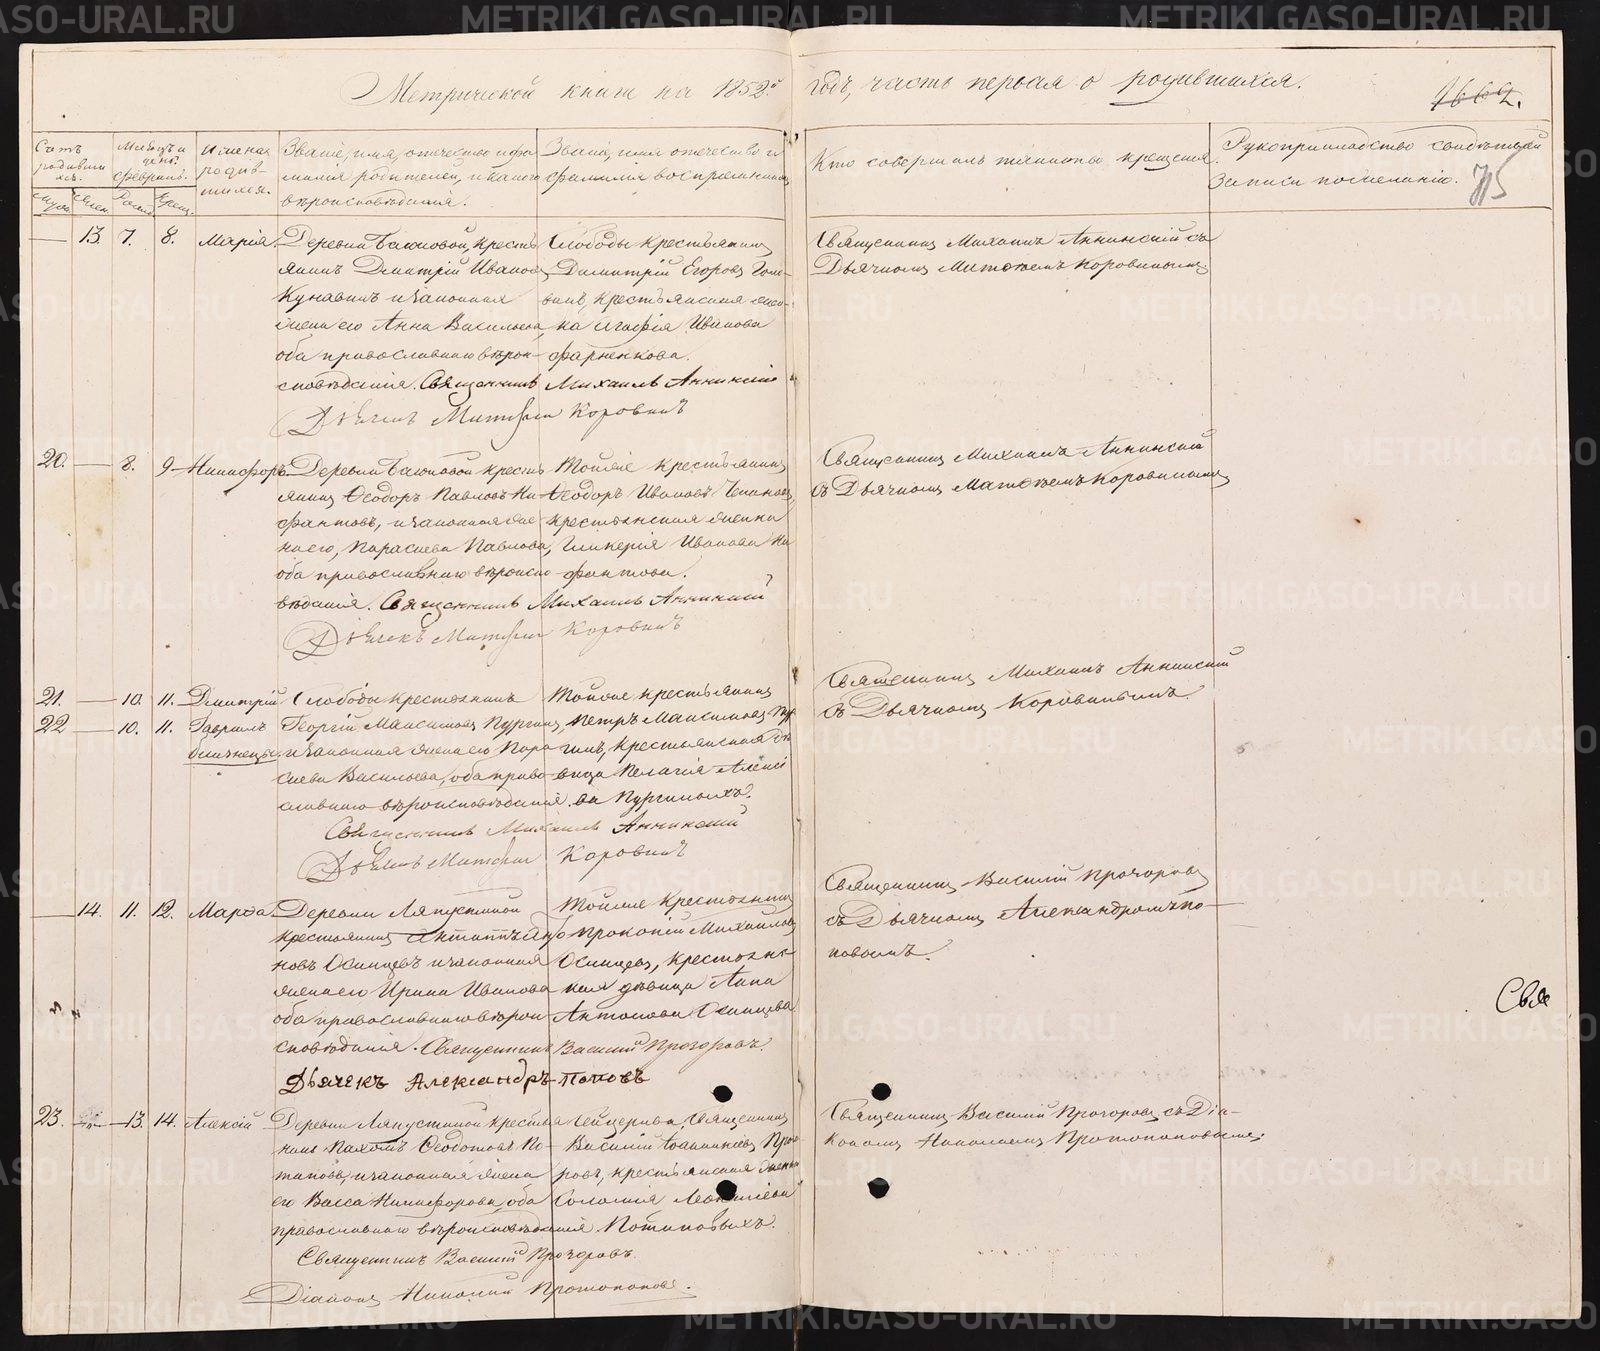 Метрической книги на 1852й годъ, часть первая о родившихся.
1662.
75
Счетъ родившихся.
Мѣсяцъ и день. февраль.
Имена родившихся.
Званіе, имя, отечество и фамилія родителей, и какого вѣроисповѣданія.
Званіе, имя отечество и фамилія воспріемниковъ
Кто совершалъ таинство крещенія.
Рукоприкладство свидѣтелей записи по желанію.
13. 7. 8. Марія.
Деревни Баюновой, кресть
янинъ Дмитрій Ивановъ
Кунавинъ и законная
жена его Анна Васильева
оба православнаго вѣрои-
сповѣданія. Священникъ Михаилъ Аннинскій
Дьячекъ Митрофанъ Коровинъ
Слободы крестьянинъ
Димитрій Егоровъ
винъ, крестьянская
ка Агафія Иванова
Священникъ Михаилъ Аннинскій съ
Дьячкомъ Коровинымъ
20. 8. 9 Никифоръ.
Деревни Баюновой кресть
янинъ Ѳеодоръ Павловъ Ни
фантовъ, и законная же
на его, Парасковья Павлова,
оба православнаго вѣроиспо
вѣданія. Священникъ Михаилъ Аннинскій
Дьячекъ Митрофанъ Коровинъ
Тойже крестьянинъ
Ѳеодоръ Ивановъ
крестьянская женка
Гликерія Иванова Ни
фантова.
Священникъ Михаилъ Аннинскій
съ Дьячкомъ Коровинымъ
21. 10. 11. Дмитрій
22 10. 11. Гавріилъ
близнецы
Слободы крестьянинъ
Георгій Максимовъ Пургинъ,
и законная жена его Пара
скева Васильева, оба право
славнаго вѣроисповѣданія.
Священникъ Михаилъ Аннинскій
Дьячекъ Митрофанъ Коровинъ
Тойже крестьянинъ
Петръ Максимовъ Пур
гинъ, крестьянская дѣ
вица Пелагія Алексѣ
ва Пургиныхъ.
Священникъ Михаилъ Аннинскій
съ Дьячкомъ Коровинымъ.
14. 11. 12. Марѳа.
Деревни Ляпустиной
крестьянинъ Антипъ
новъ Осинцевъ и законная
жена его Ирина Иванова
оба православнаго вѣрои
сповѣданія. Священникъ Василій Прозоровъ.
Дьячекъ Александръ Поповъ
Тойже крестьянинъ
Прокопій Михайловъ
Осинцевъ, крестьянс
кая дѣвица Анна
Антонова Осинцева
Священникъ Василій Прозоровъ
съ Дьячкомъ Александромъ По-
повымъ.
Свя
23. 13. 14. Алексій
Деревни Ляпустиной крестья
нинъ Пахомъ Ѳедотовъ По-
таповъ, и законная жена
его Васса Никифорова, оба
православнаго вѣроисповѣданія.
Священникъ Василій Прозоровъ.
Діаконъ Николай Протопоповъ.
Священникъ
Василій Іоанникіевъ Прозо
ровъ, крестьянская женка
Соломія
Потаповыхъ.
Священникъ Василій Прозоровъ съ Діа-
кономъ Николаемъ Протопоповымъ.
METRIKI.GASO-URAL.RU